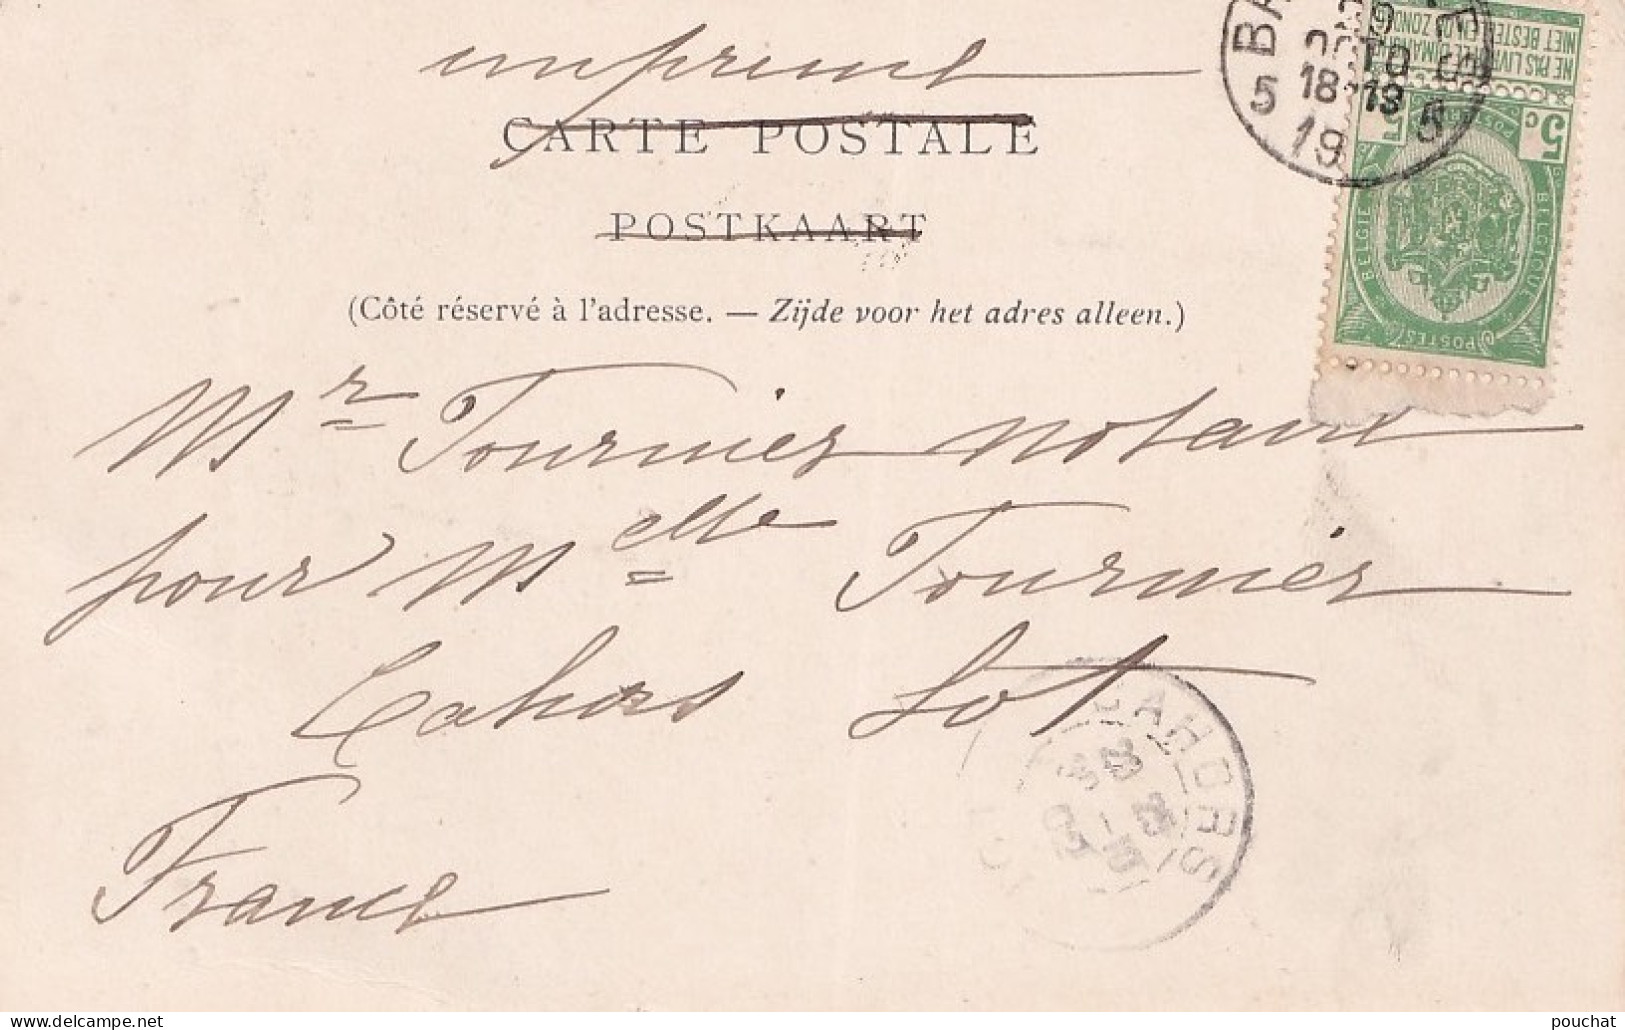 imprimé
CARTE POSTALE
POSTKAART
(Côté réservé à l'adresse. — Zijde voor het adres alleen.)
Mr Tournier notaire
pour Melle Tournier
Cahors Lot
France
5 18-19
19
NE PAS LIVRER LE DIMANCHE
NIET BESTELLEN OP ZONDAG
5 c
BELGIE BELGIQUE
POSTES
CAHORS
delcampe.net
pouchat